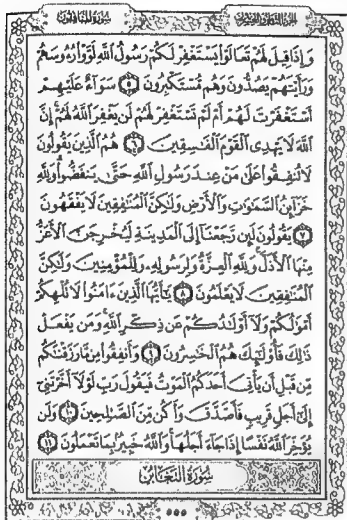 سورة المنافقون
الجزء الثامن والعشرون
وَإِذَا قِيلَ لَهُمْ تَعَالَوْا يَسْتَغْفِرْ لَكُمْ رَسُولُ اللَّهِ لَوَّوْا رُءُوسَهُمْ
وَرَأَيْتَهُمْ يَصُدُّونَ وَهُم مُّسْتَكْبِرُونَ ٥ سَوَاءٌ عَلَيْهِمْ
أَسْتَغْفَرْتَ لَهُمْ أَمْ لَمْ تَسْتَغْفِرْ لَهُمْ لَن يَغْفِرَ اللَّهُ لَهُمْ إِنَّ
اللَّهَ لَا يَهْدِي الْقَوْمَ الْفَاسِقِينَ ٦ هُمُ الَّذِينَ يَقُولُونَ
لَا تُنفِقُوا عَلَىٰ مَنْ عِندَ رَسُولِ اللَّهِ حَتَّىٰ يَنفَضُّوا وَلِلَّهِ
خَزَائِنُ السَّمَٰوَٰتِ وَالْأَرْضِ وَلَٰكِنَّ الْمُنَٰفِقِينَ لَا يَفْقَهُونَ
٧ يَقُولُونَ لَئِن رَّجَعْنَا إِلَى الْمَدِينَةِ لَيُخْرِجَنَّ الْأَعَزُّ
مِنْهَا الْأَذَلَّ وَلِلَّهِ الْعِزَّةُ وَلِرَسُولِهِ وَلِلْمُؤْمِنِينَ وَلَٰكِنَّ
الْمُنَٰفِقِينَ لَا يَعْلَمُونَ ٨ يَٰأَيُّهَا الَّذِينَ ءَامَنُوا لَا تُلْهِكُمْ
أَمْوَٰلُكُمْ وَلَا أَوْلَٰدُكُمْ عَن ذِكْرِ اللَّهِ وَمَن يَفْعَلْ
ذَٰلِكَ فَأُولَٰئِكَ هُمُ الْخَٰسِرُونَ ٩ وَأَنفِقُوا مِن مَّا رَزَقْنَٰكُم
مِّن قَبْلِ أَن يَأْتِيَ أَحَدَكُمُ الْمَوْتُ فَيَقُولَ رَبِّ لَوْلَا أَخَّرْتَنِي
إِلَىٰ أَجَلٍ قَرِيبٍ فَأَصَّدَّقَ وَأَكُن مِّنَ الصَّٰلِحِينَ ١٠ وَلَن
يُؤَخِّرَ اللَّهُ نَفْسًا إِذَا جَاءَ أَجَلُهَا وَاللَّهُ خَبِيرٌ بِمَا تَعْمَلُونَ ١١
سُورَةُ التَّغَابُنِ
٥٥٥